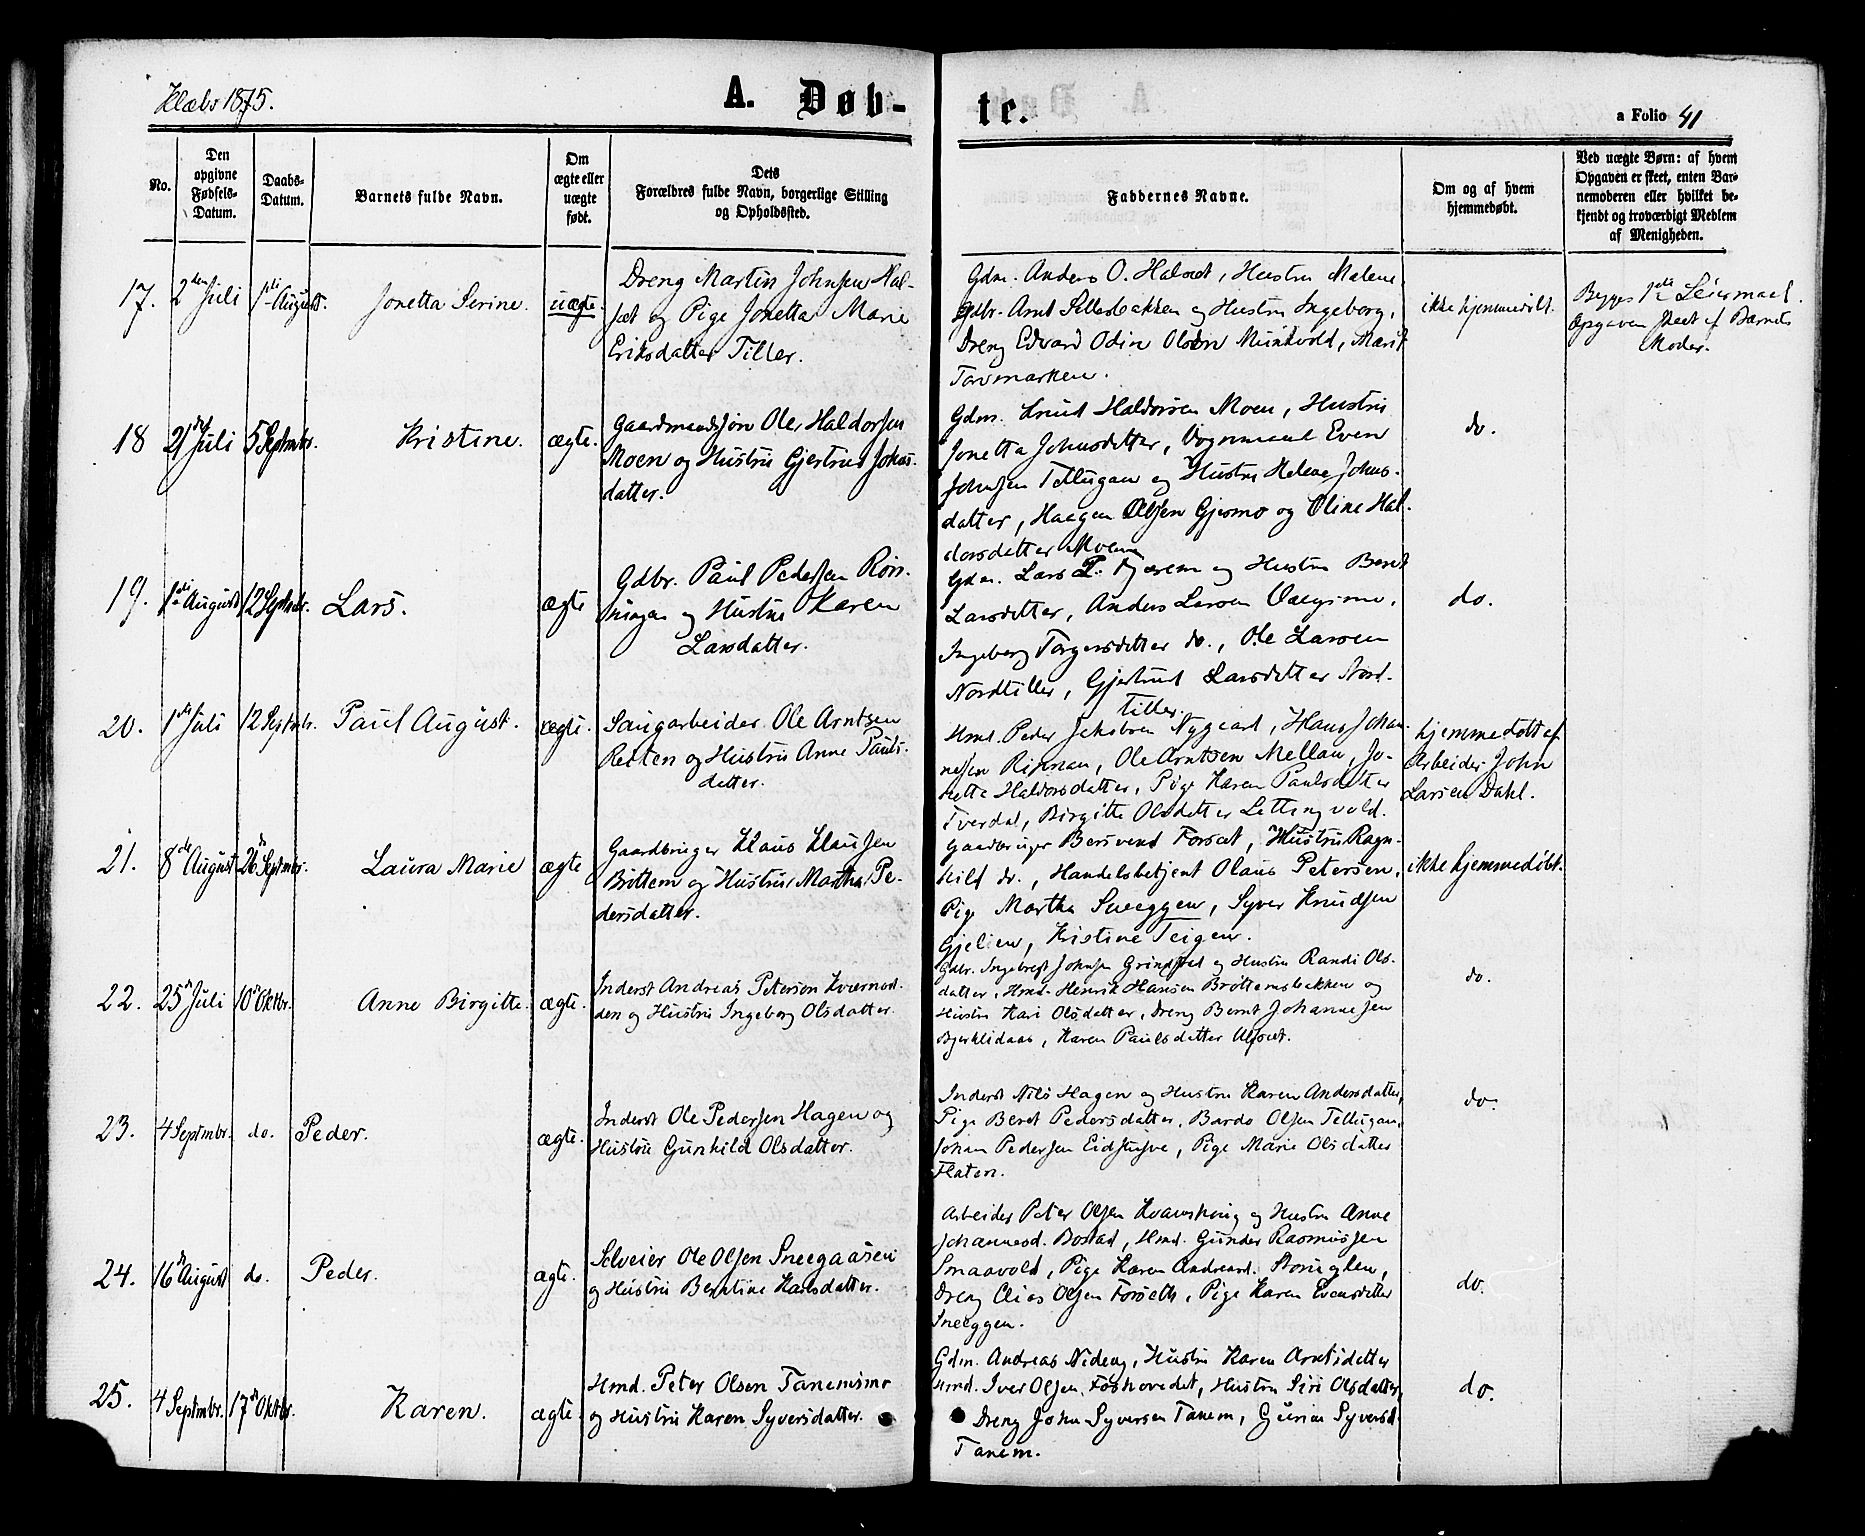 Klæbo 1875.
A. Døb-
te.
a Folio 41
No.
Den opgivne Fødsels-Datum.
Daabs-Datum.
Barnets fulde Navn.
Om ægte eller uægte født.
Dets Forældres fulde Navn, borgerlige Stilling og Opholdssted.
Faddernes Navne.
Om og af hvem hjemmedøbt.
Ved uægte Børn: af hvem Opgaven er skeet, enten Barnemoderen eller hvilket bekjendt og troværdigt Medlem af Menigheden.
17. 2den Juli 1ste August. Jonetta Serine. uægte.
Dreng Martin Johnsen Hal-
set og Pige Jonetta Marie
Eriksdatter Tiller.
Gdm. Anders O. Halset, Hustru Malene,
Gdbr. Arnt Sellesbakken og Hustru Ingeborg,
Dreng Edvard Odin Olsen Munkvold, Marit
Torvmarken.
ikke hjemmedøbt.
Begges 1ste Leiermaal.
Opgaven skeet af Barnets
Moder.
18 21de Juli 5 Septmbr. Kristine. ægte.
Gaardmandssøn Ole Haldorsen
Moen og Hustru Gjertrud Johns-
datter.
Gdm. Knud Haldorsen Moen, Hustru
Jonetta Johnsdatter, Vognmand Even
Johnsen Tellugan og Hustru Helene Johns-
datter, Haagen Olsen Gjesmo og Oline Hal-
dorsdatter Moen.
do.
19. 1ste August 12 Septmbr. Lars. ægte
Gdbr. Paul Pedersen Røn-
ningen og Hustru Karen
Larsdatter.
Gdm. Lars P. og Hustru Beret
Larsdatter, Anders Larsen
Ingeborg Torgersdatter do., Ole Larsen
Nordtiller, Gjertrud Larsdatter Nord-
tiller.
do.
20. 1ste Juli 12 Septmbr. Paul August. ægte.
Saugarbeider Ole Arntsen
Reiten og Hustru Anne Pauls-
datter.
Hmd. Peder Jakobsen Nygaard, Hans Johan-
nesen Rinnan, Ole Arntsen Mellau, Jo-
netta Haldorsdatter, Pige Karen Paulsdatter
Tverdal, Birgitte Olsdatter Lettingvold.
hjemmedøbt af
Arbeider John
Larsen Dahl.
21. 8de August 26de Septmbr. Laura Marie ægte
Gaardbruger Klaus Klausen
Brøttem og Hustru Martha Pe-
dersdatter.
Gaardbruger Bersvend Forset, Hustru Ragn-
hild do., Handelsbetjent Olaus Petersen,
Pige Martha Sneeggen, Syver Knudsen
Gjelien, Kristine Teigen.
ikke hjemmedøbt.
22. 25de Juli 10de Oktbr. Anne Birgitte. ægte.
Inderst Andreas Petersen Kværnod-
den og Hustru Ingeborg Olsdatter.
Gdbr. Ingebregt Johnsen Grindstad og Hustru Randi Ols-
datter, Hmd. Henrik Hansen Brøttemsbakken og
Hustru Kari Olsdatter, Dreng Bernt Johannesen
Bjerklidaas, Karen Paulsdatter Ulset.
do.
23. 4 Septmbr. do. Peder. ægte.
Inderst Ole Pedersen Hagen og
Hustru Gunhild Olsdatter.
Inderst Nils Hagen og Hustru Karen Andersdatter,
Pige Beret Pedersdatter, Bardo Olsen Tellugan,
Johan Pedersen Eidstuve, Pige Marie Olsdatter
Flaten.
do.
24. 16de August do. Peder. ægte.
Selveier Ole Olsen Sneegaasen
og Hustru Berntine Karlsdatter.
Arbeider Peter Olsen og Hustru Anne
Johannesd. Bostad, Hmd. Gunder Rasmussen
Smaavold, Pige Karen Andreasd. Storuglen,
Dreng Elias Olsen Forseth, Pige Karen Evensdatter
Sneeggen.
do.
25. 4 Septmbr. 17de Oktbr. Karen. ægte.
Hmd. Peter Olsen Tanemsmo
og Hustru Karen Syversdatter.
Gdm. Andreas Nideng, Hustru Karen Arntsdatter
Hmd. Iver Olsen Foshovedet, Hustru Siri Olsdatter,
Dreng John Syversen Tanem, Guriae Syversd.
Tanem.
do.